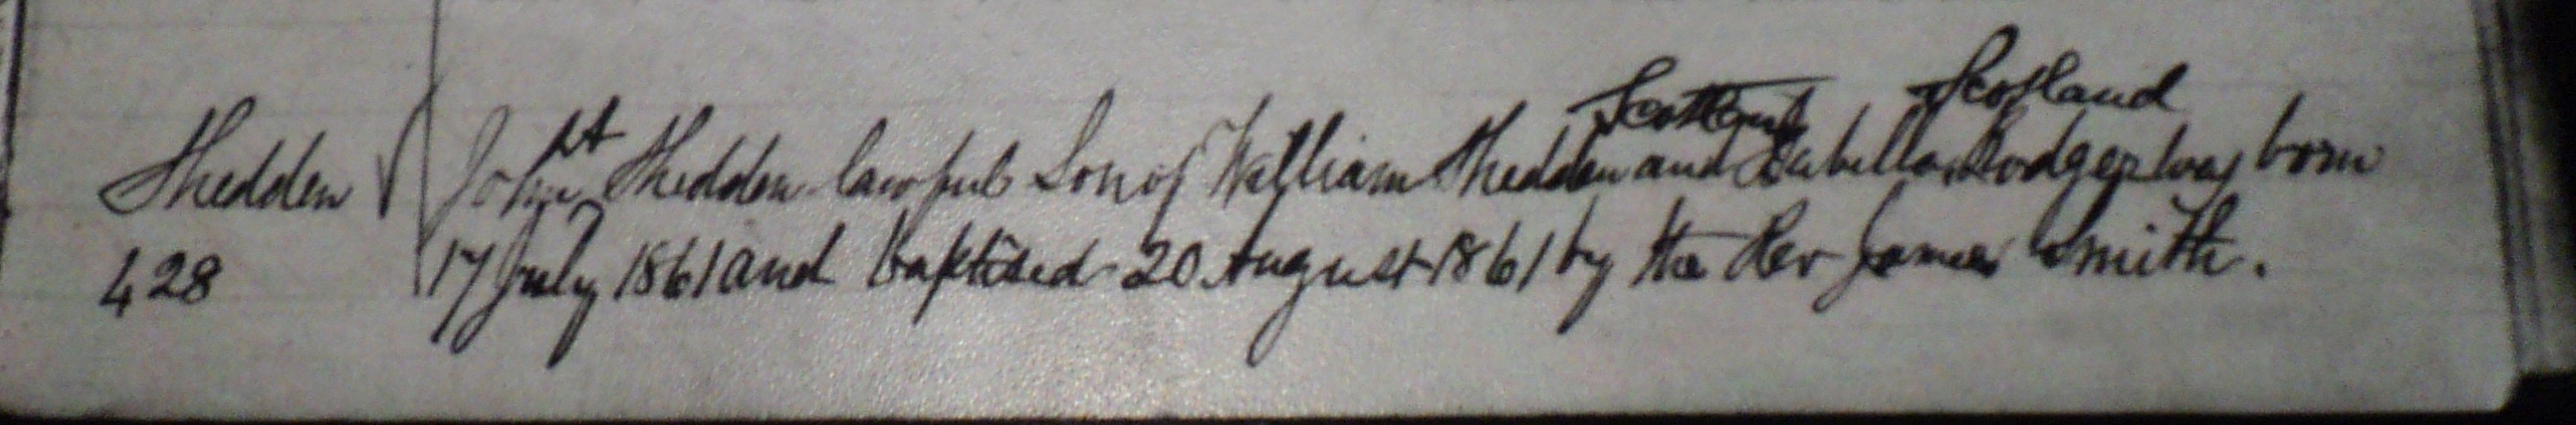 Scotland Scotland
Shedden John Shedden lawful Son of William Shedden and Isabella Rodger was born
428 17 July 1861 and baptised 20 August 1861 by the Rev James Smith.